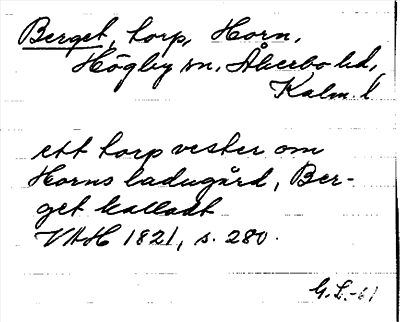 Berget, torp, Horn,
Högby sn, Åkerbo hd,
Kalm. l
ett torp vester om
Horns ladugård, Ber-
get kalladt
VAH 1821, s. 280.
G.L.-61